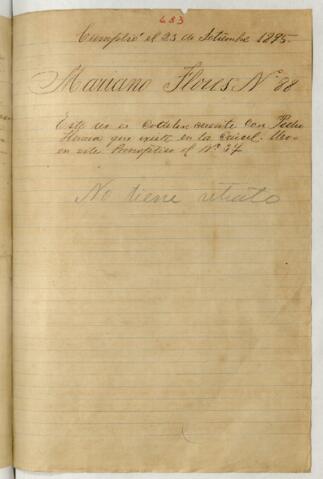 683
Cumplió el 23 de Setiembre 1895.
Mariano Flores Nº 88
Este reo es Codelincuente con Pedro
que existe en la Cárcel.
en este Prontuario el Nº 37
No tiene retrato